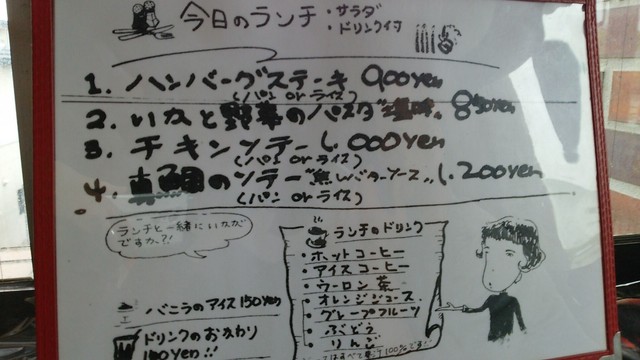 今日のランチ ・サラダ ・ドリンク付
1. ハンバーグステーキ 900yen
(パン or ライス)
2. いかと野菜のパスタ"塩味" 850yen
3. チキンソテー 1.000yen
(パン or ライス)
4. 真鯛のソテー"焦しバターソース" 1.200yen
(パン or ライス)
ランチと一緒にいかが
ですか?!
バニラのアイス 150yen
ドリンクのおかわり
100yen!!
ランチのドリンク
・ホットコーヒー
・アイスコーヒー
・ウーロン茶
・オレンジジュース
・グレープフルーツ
・ぶどう
・りんご